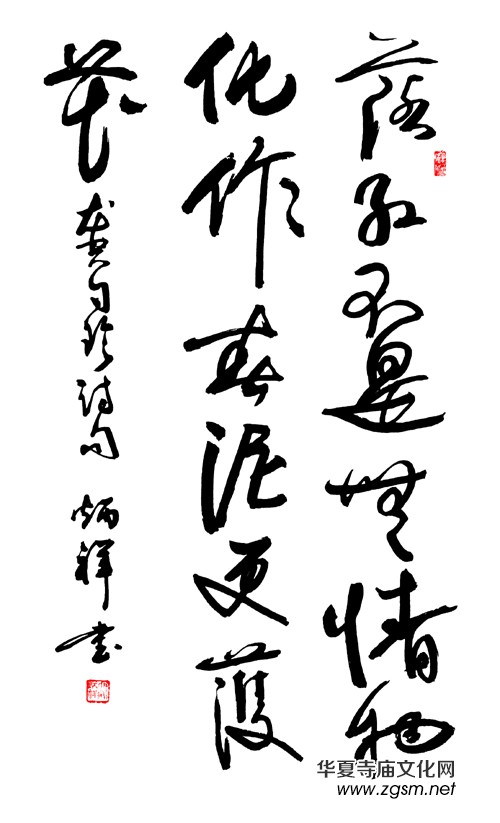 落紅不是無情物
化作春泥更護
花 龔自珍詩句 炳祥書
华夏寺庙文化网
www.zgsm.net